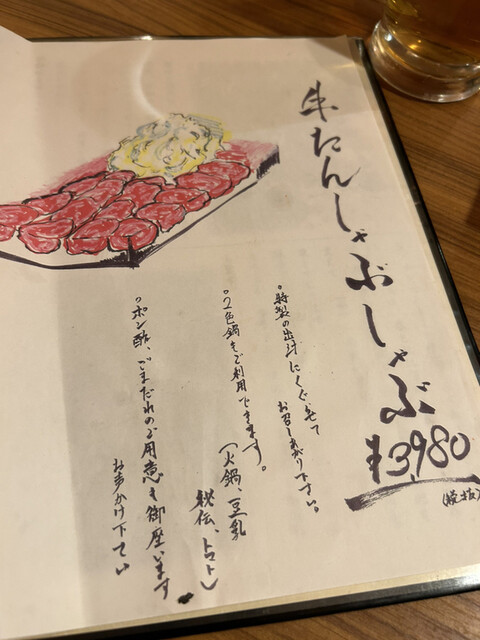 牛たんしゃぶしゃぶ
¥3,980
(税抜)
。特製の出汁にくぐらせて
お召しあがり下さい。
。2色鍋もご利用できます。
(火鍋、豆乳
秘伝、トマト)
。ポン酢、ごまだれのご用意も御座います
お声かけ下さい